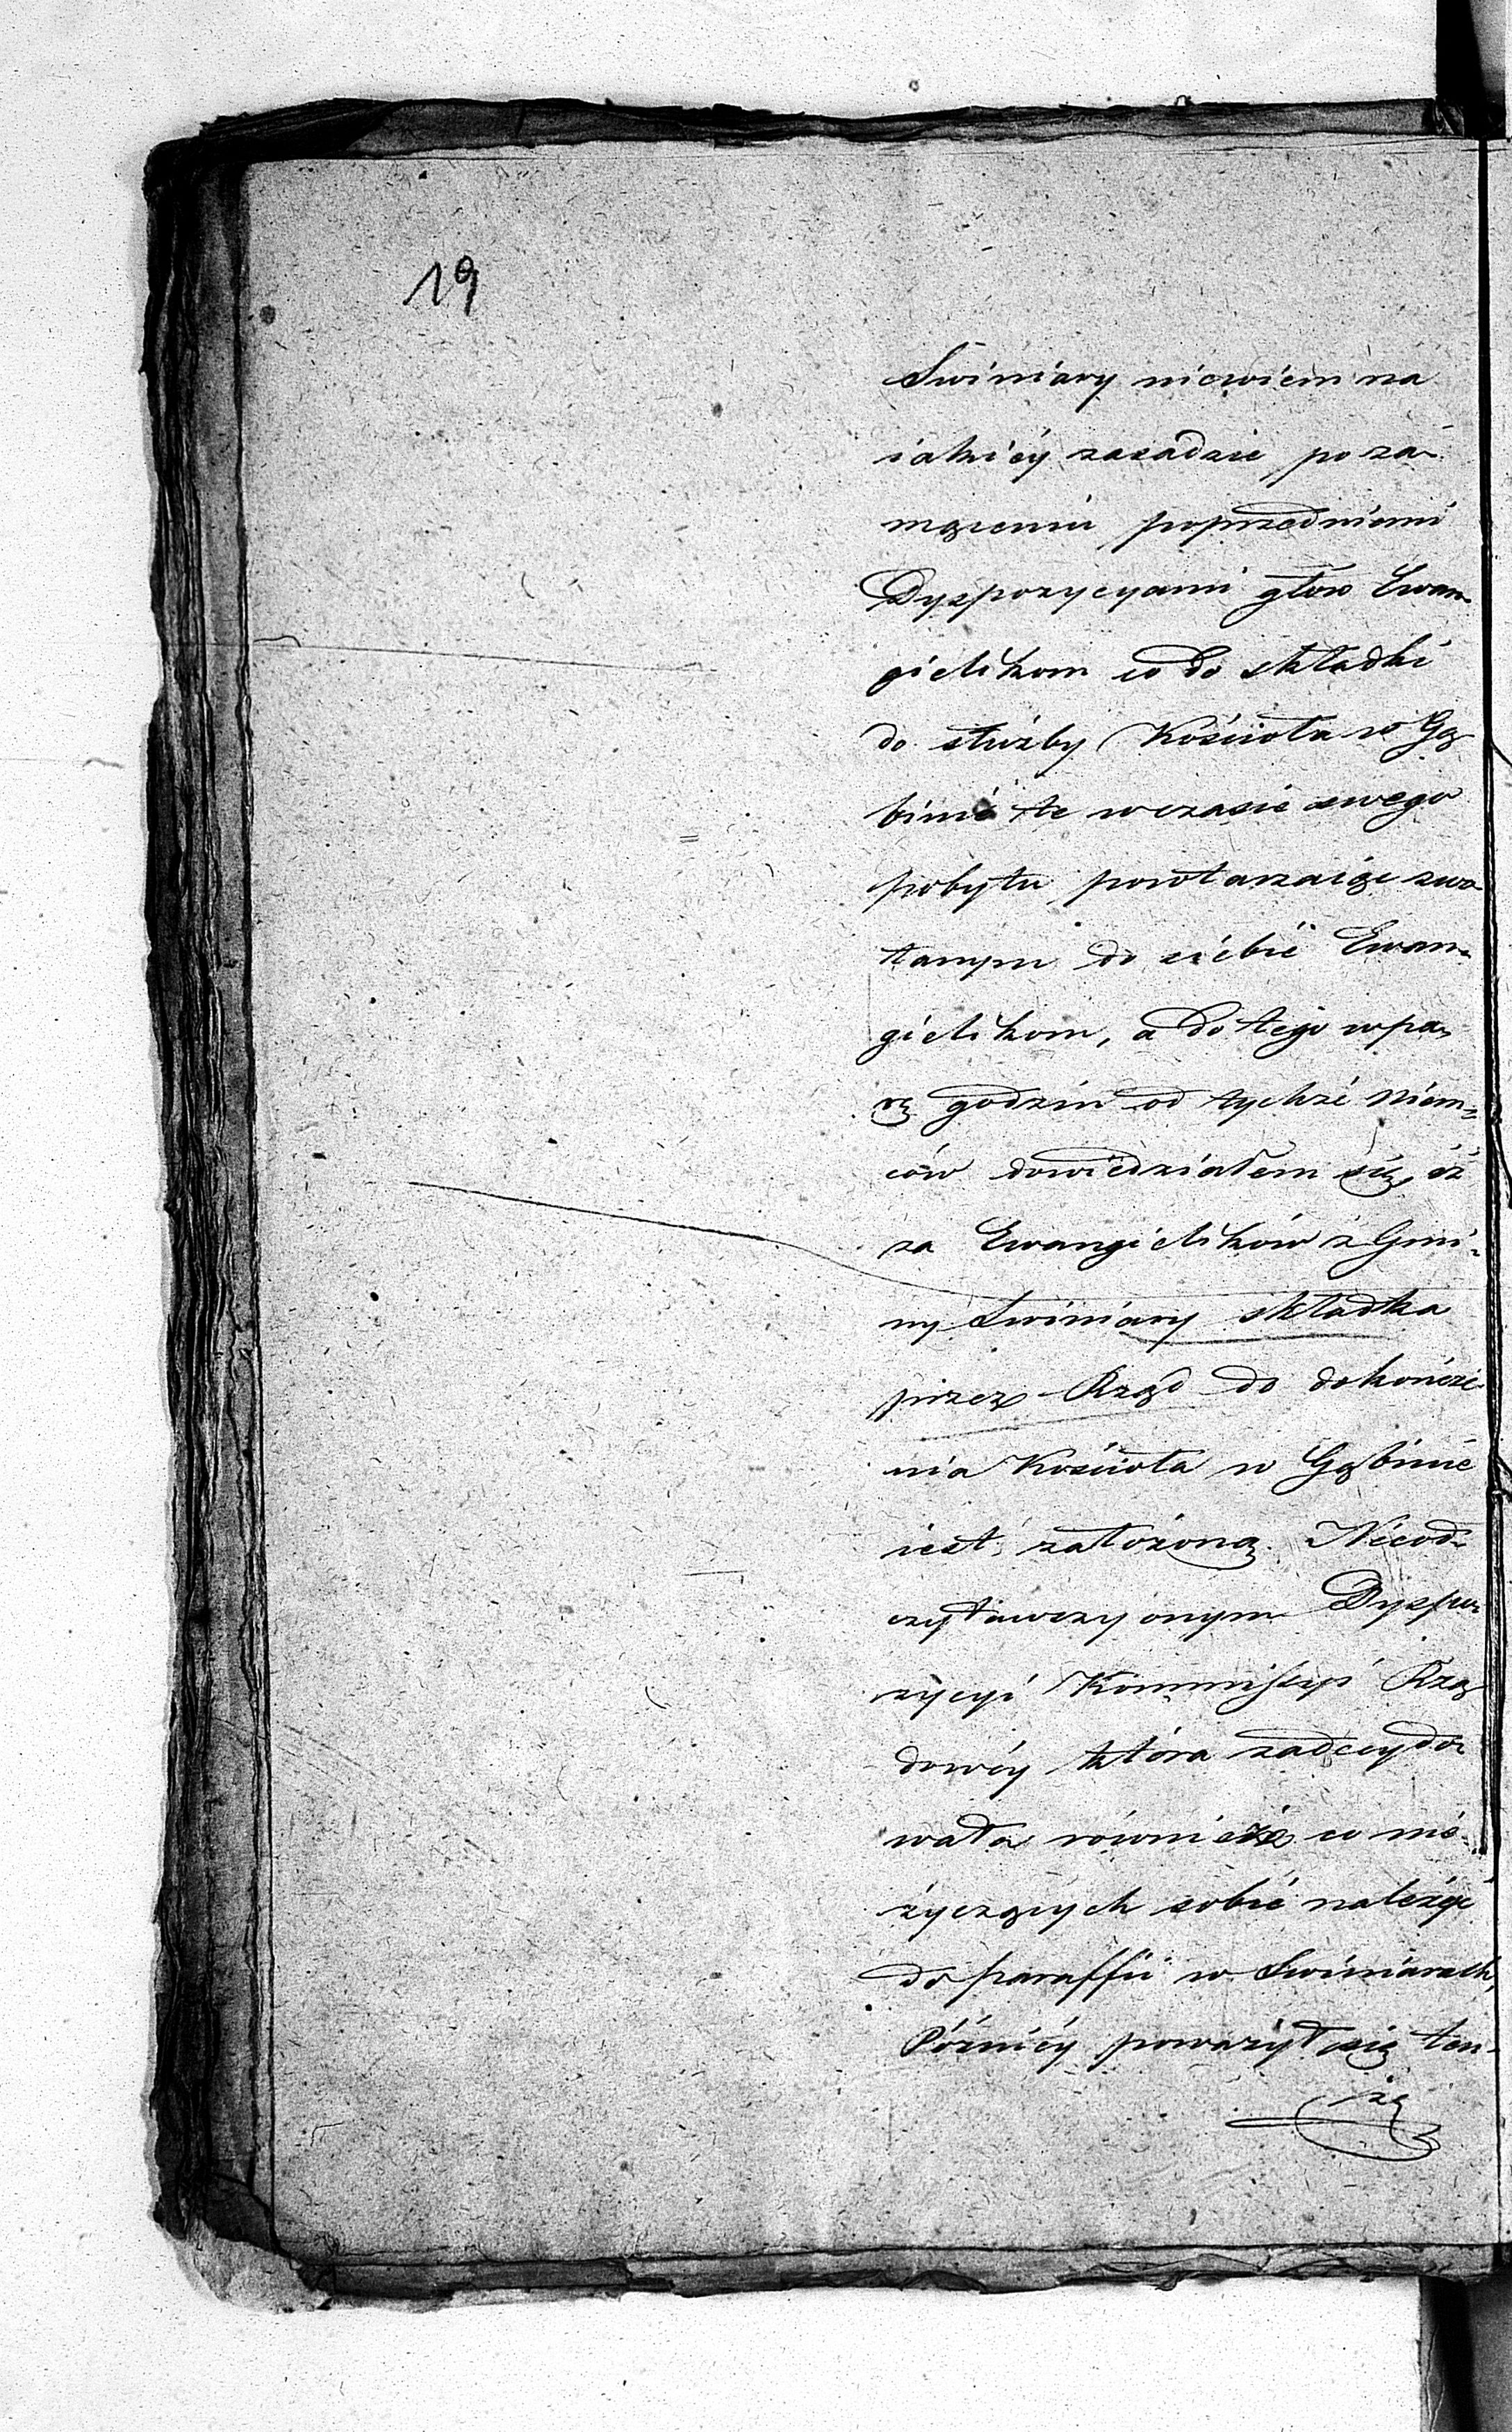 19
Swiniary niewiem na
iakiéy zasadzie po za-
mąceniu poprzedniemi
Dyspozycyami głow Ewan-
gielikom co do składki
do służby Kościoła w Gą
binie te w czasie swego
pobytu powtarzaiąc zwo
łanym do siebie Ewan-
gielikom, a do tego w pa-
rę godzin od tychże Niem-
ców dowiedziałem się, iż
za Ewangielików z Gmi-
ny Swiniary składka
przez Rząd do dokończe-
nia Kościoła w Gąbinie
iest założoną. Nieod-
czytawszy onym Dyspo-
zycyi Kommissyi Rzą
dowéy która zadecydo-
wała również co nie
życzących sobie należyć
do paraffii w Swiniarach,
Późniéy poważył się ten-
że